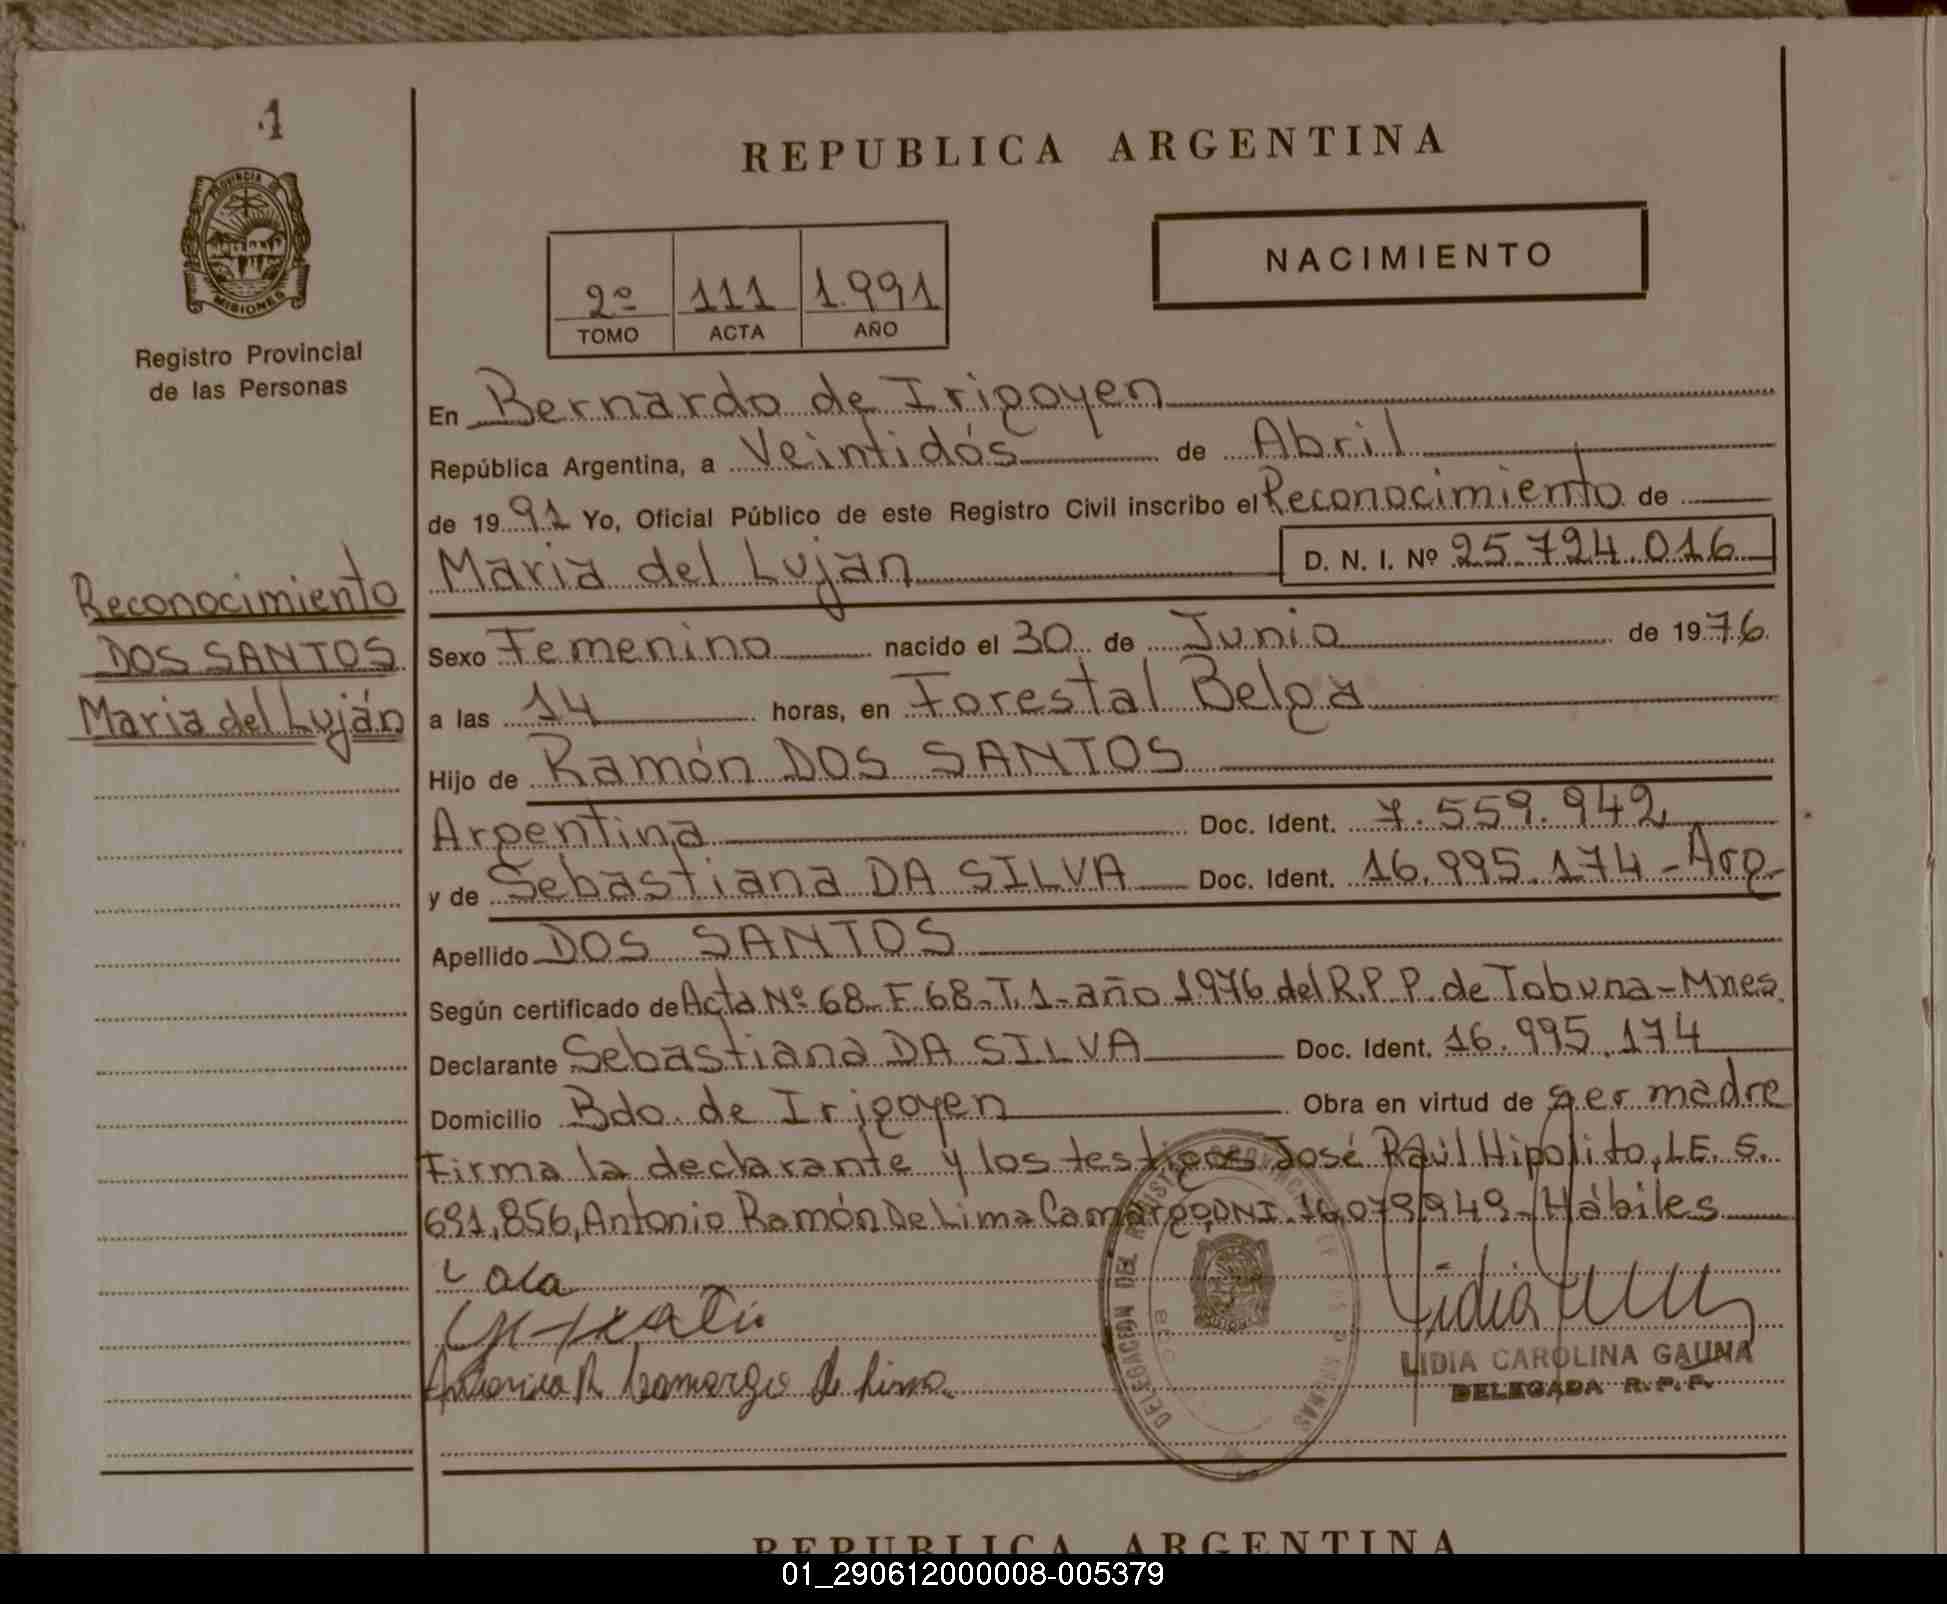 1
PROVINCIA DE
MISIONES
Registro Provincial
de las Personas
Reconocimiento
DOS SANTOS
Maria del Luján
REPUBLICA ARGENTINA
NACIMIENTO
2º 111 1.991
TOMO ACTA AÑO
En Bernardo de Irigoyen
República Argentina, a Veintidós de Abril
de 19 91 Yo, Oficial Público de este Registro Civil inscribo el Reconocimiento de
Maria del Lujan D. N. I. Nº 25.724.016
Sexo Femenino nacido el 30 de Junio de 19 76
a las 14 horas, en Forestal Belga
Hijo de Ramón DOS SANTOS
Argentina Doc. Ident. 7.559.942
y de Sebastiana DA SILVA Doc. Ident. 16.995.174 - Arg
Apellido DOS SANTOS
Según certificado de Acta Nº 68 - F 68 - T. 1 - año 1976 del R.P.P. de Tobuna - Mnes.
Declarante Sebastiana DA SILVA Doc. Ident. 16.995.174
Domicilio Bdo. de Irigoyen Obra en virtud de ser madre
Firma la declarante y los testigos José Raúl Hipolito, L.E. 5.
691.856, Antonio Ramón De Lima Camargo, DNI. 16.079.949 - Hábiles
Lidia
Antonio R Camargo de Lima
DELEGACION DEL REGISTRO PROVINCIAL DE LAS PERSONAS
LIDIA CAROLINA GAUNA
DELEGADA R. P. P.
REPUBLICA ARGENTINA
01_290612000008-005379